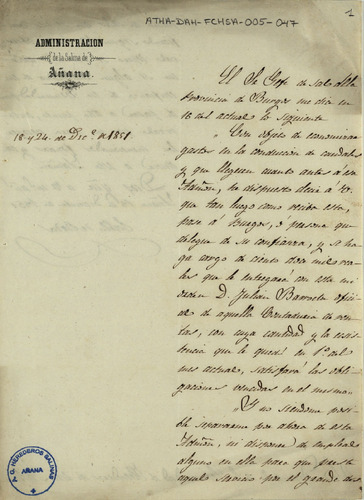 ATHA-DAH-FCHSA-005-047
1
ADMINISTRACION
de la Salina de
Añana.
18 y 24. de Dic.e de 1851
El Sr Gefe de Sales de la
Provincia de Burgos me dice en
18 del actual lo siguiente
"Con objeto de economizar
gastos en la conduccion de caudales
y que lleguen cuanto antes á esa
Admon, ha dispuesto decir á V.
que tan luego como reciba esta,
pase á Burgos, ó persona que
delegue de su confianza, y se ha
ga cargo de ciento doce mil rea
les que le entregará con esta mi
orden D. Julian Barrueta ofici
al de aquella Contaduria de ren
tas, con cuya cantidad y la exis
tencia que le quedó en 1.o del
mes actual, satisfará las obli
gaciones vencidas en el mismo."
Y no siendome posi
ble separarme por ahora de esta
Admon, ni disponer de empleado
alguno en ella para que preste
aquel servicio por el grande
A. G. HEREDEROS SALINAS
AÑANA